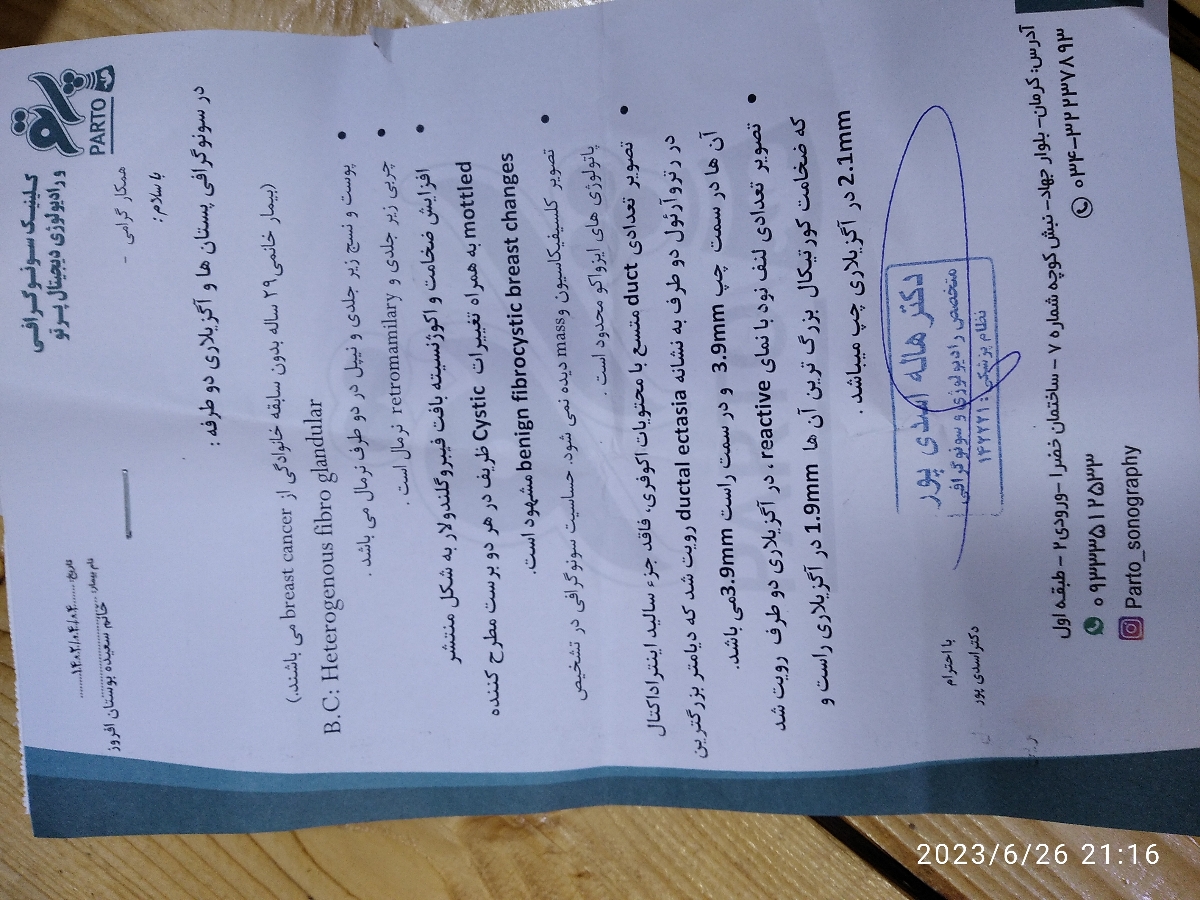 کلینیک سونوگرافی
و رادیولوژی دیجیتال پرتو
پرتو
PARTO
تاریخ: ۱۴۰۲/۰۴/۰۴
نام بیمار: خانم سعیده بوستان افروز
همکار گرامی -
با سلام:
در سونوگرافی پستان ها و آگزیلاری دو طرفه:
(بیمار خانمی ۲۹ ساله بدون سابقه خانوادگی از breast cancer می باشند.)
B.C: Heterogenous fibro glandular
• پوست و نسج زیر جلدی و نیپل در دو طرف نرمال می باشد .
• چربی زیر جلدی و retromamilary نرمال است .
• افزایش ضخامت و اکوژنسیته بافت فیبروگلندولار به شکل منتشر
mottled به همراه تغییرات Cystic ظریف در هر دو برست مطرح کننده
benign fibrocystic breast changes مشهود است.
• تصویر کلسیفیکاسیون وmass دیده نمی شود. حساسیت سونوگرافی در تشخیص
پاتولوژی های ایزواکو محدود است.
• تصویر تعدادی duct متسع با محتویات اکوفری، فاقد جزء سالید اینتراداکتال
در رتروآرئول دو طرف به نشانه ductal ectasia رویت شد که دیامتر بزرگترین
آن ها در سمت چپ 3.9mm و در سمت راست 3.9mmمی باشد.
• تصویر تعدادی لنف نود با نمای reactive ، در آگزیلاری دو طرف رویت شد
که ضخامت کورتیکال بزرگ ترین آن ها 1.9mm در آگزیلاری راست و
2.1mm در آگزیلاری چپ میباشد .
دکتر هاله اسدی پور
متخصص رادیولوژی و سونوگرافی
نظام پزشکی: ۱۴۲۲۲۱
با احترام
دکتر اسدی پور
آدرس: کرمان- بلوار جهاد- نبش کوچه شماره ۷ - ساختمان خضرا -ورودی ۲ - طبقه اول
۰۳۴-۳۲۲۳۷۸۹۳
۰۹۳۳۳۵۱۲۵۳۳
Parto_sonography
2023/6/26 21:16